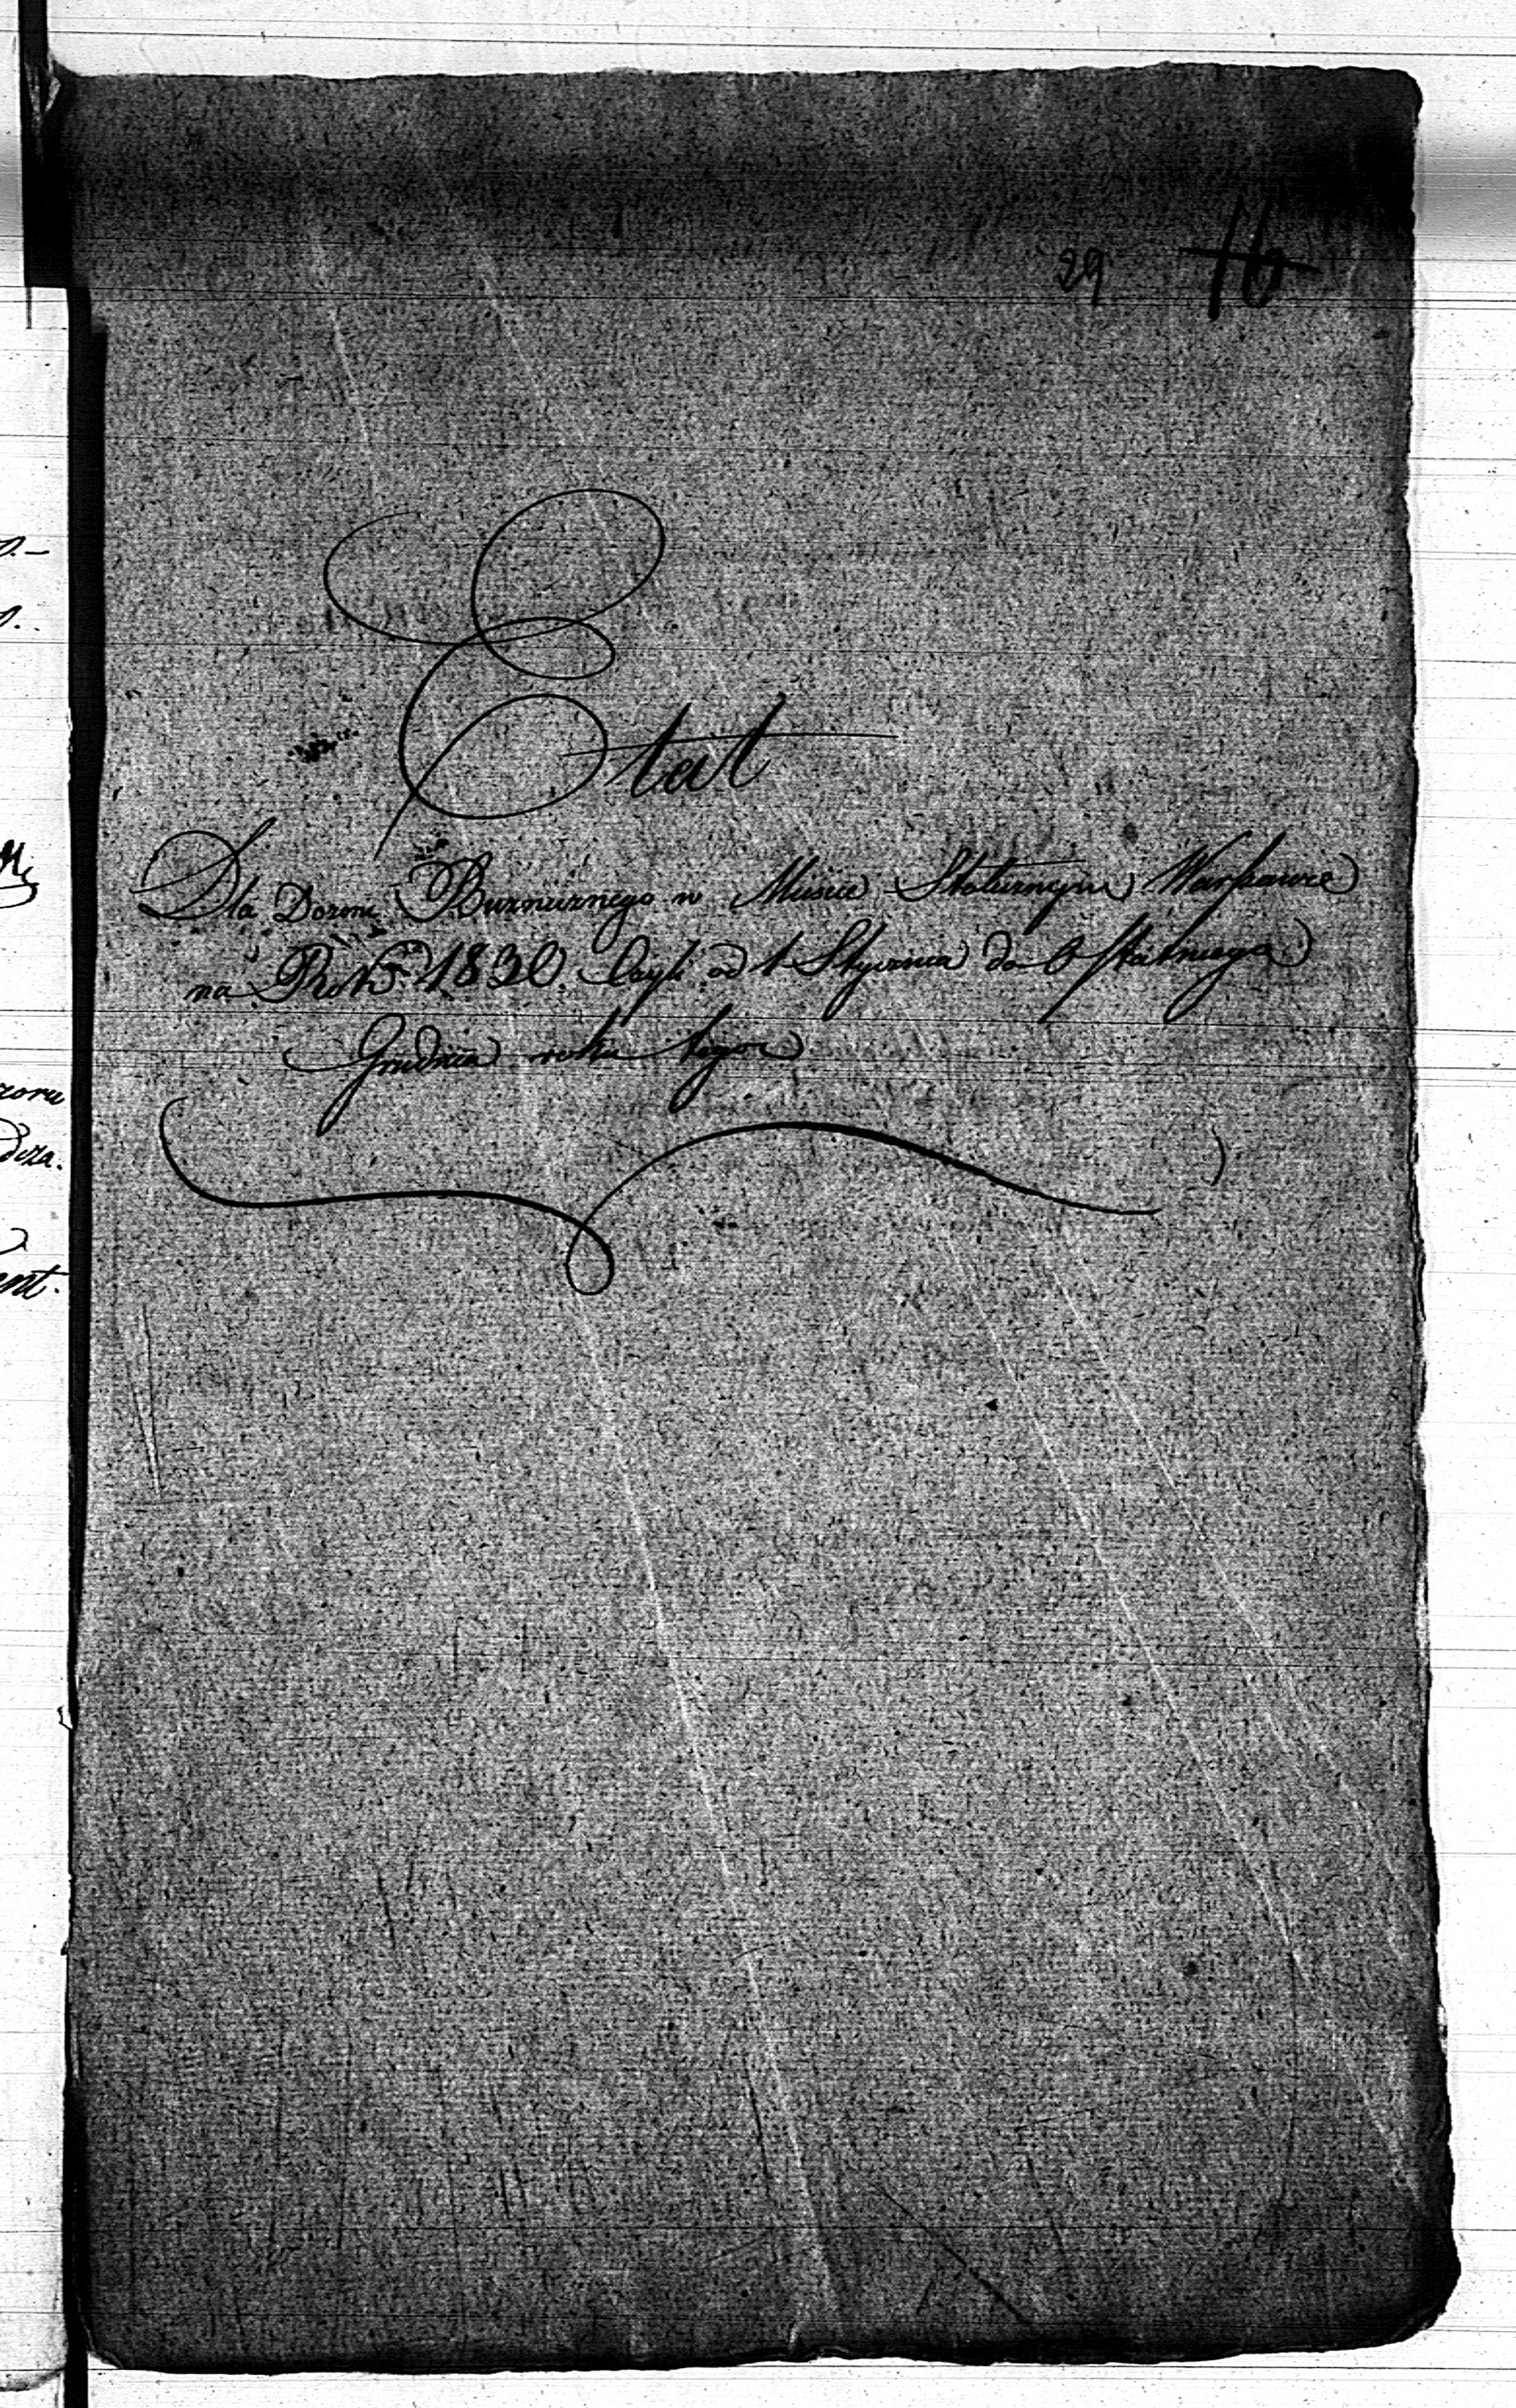 29 16
Etat
Dla Dozoru Bużniczego w Mieście Stołecznym Warszawie
na Rok 1830. Czyli od 1 Stycznia do Ostatniego
Grudnia roku tegoż
zoru
dza.